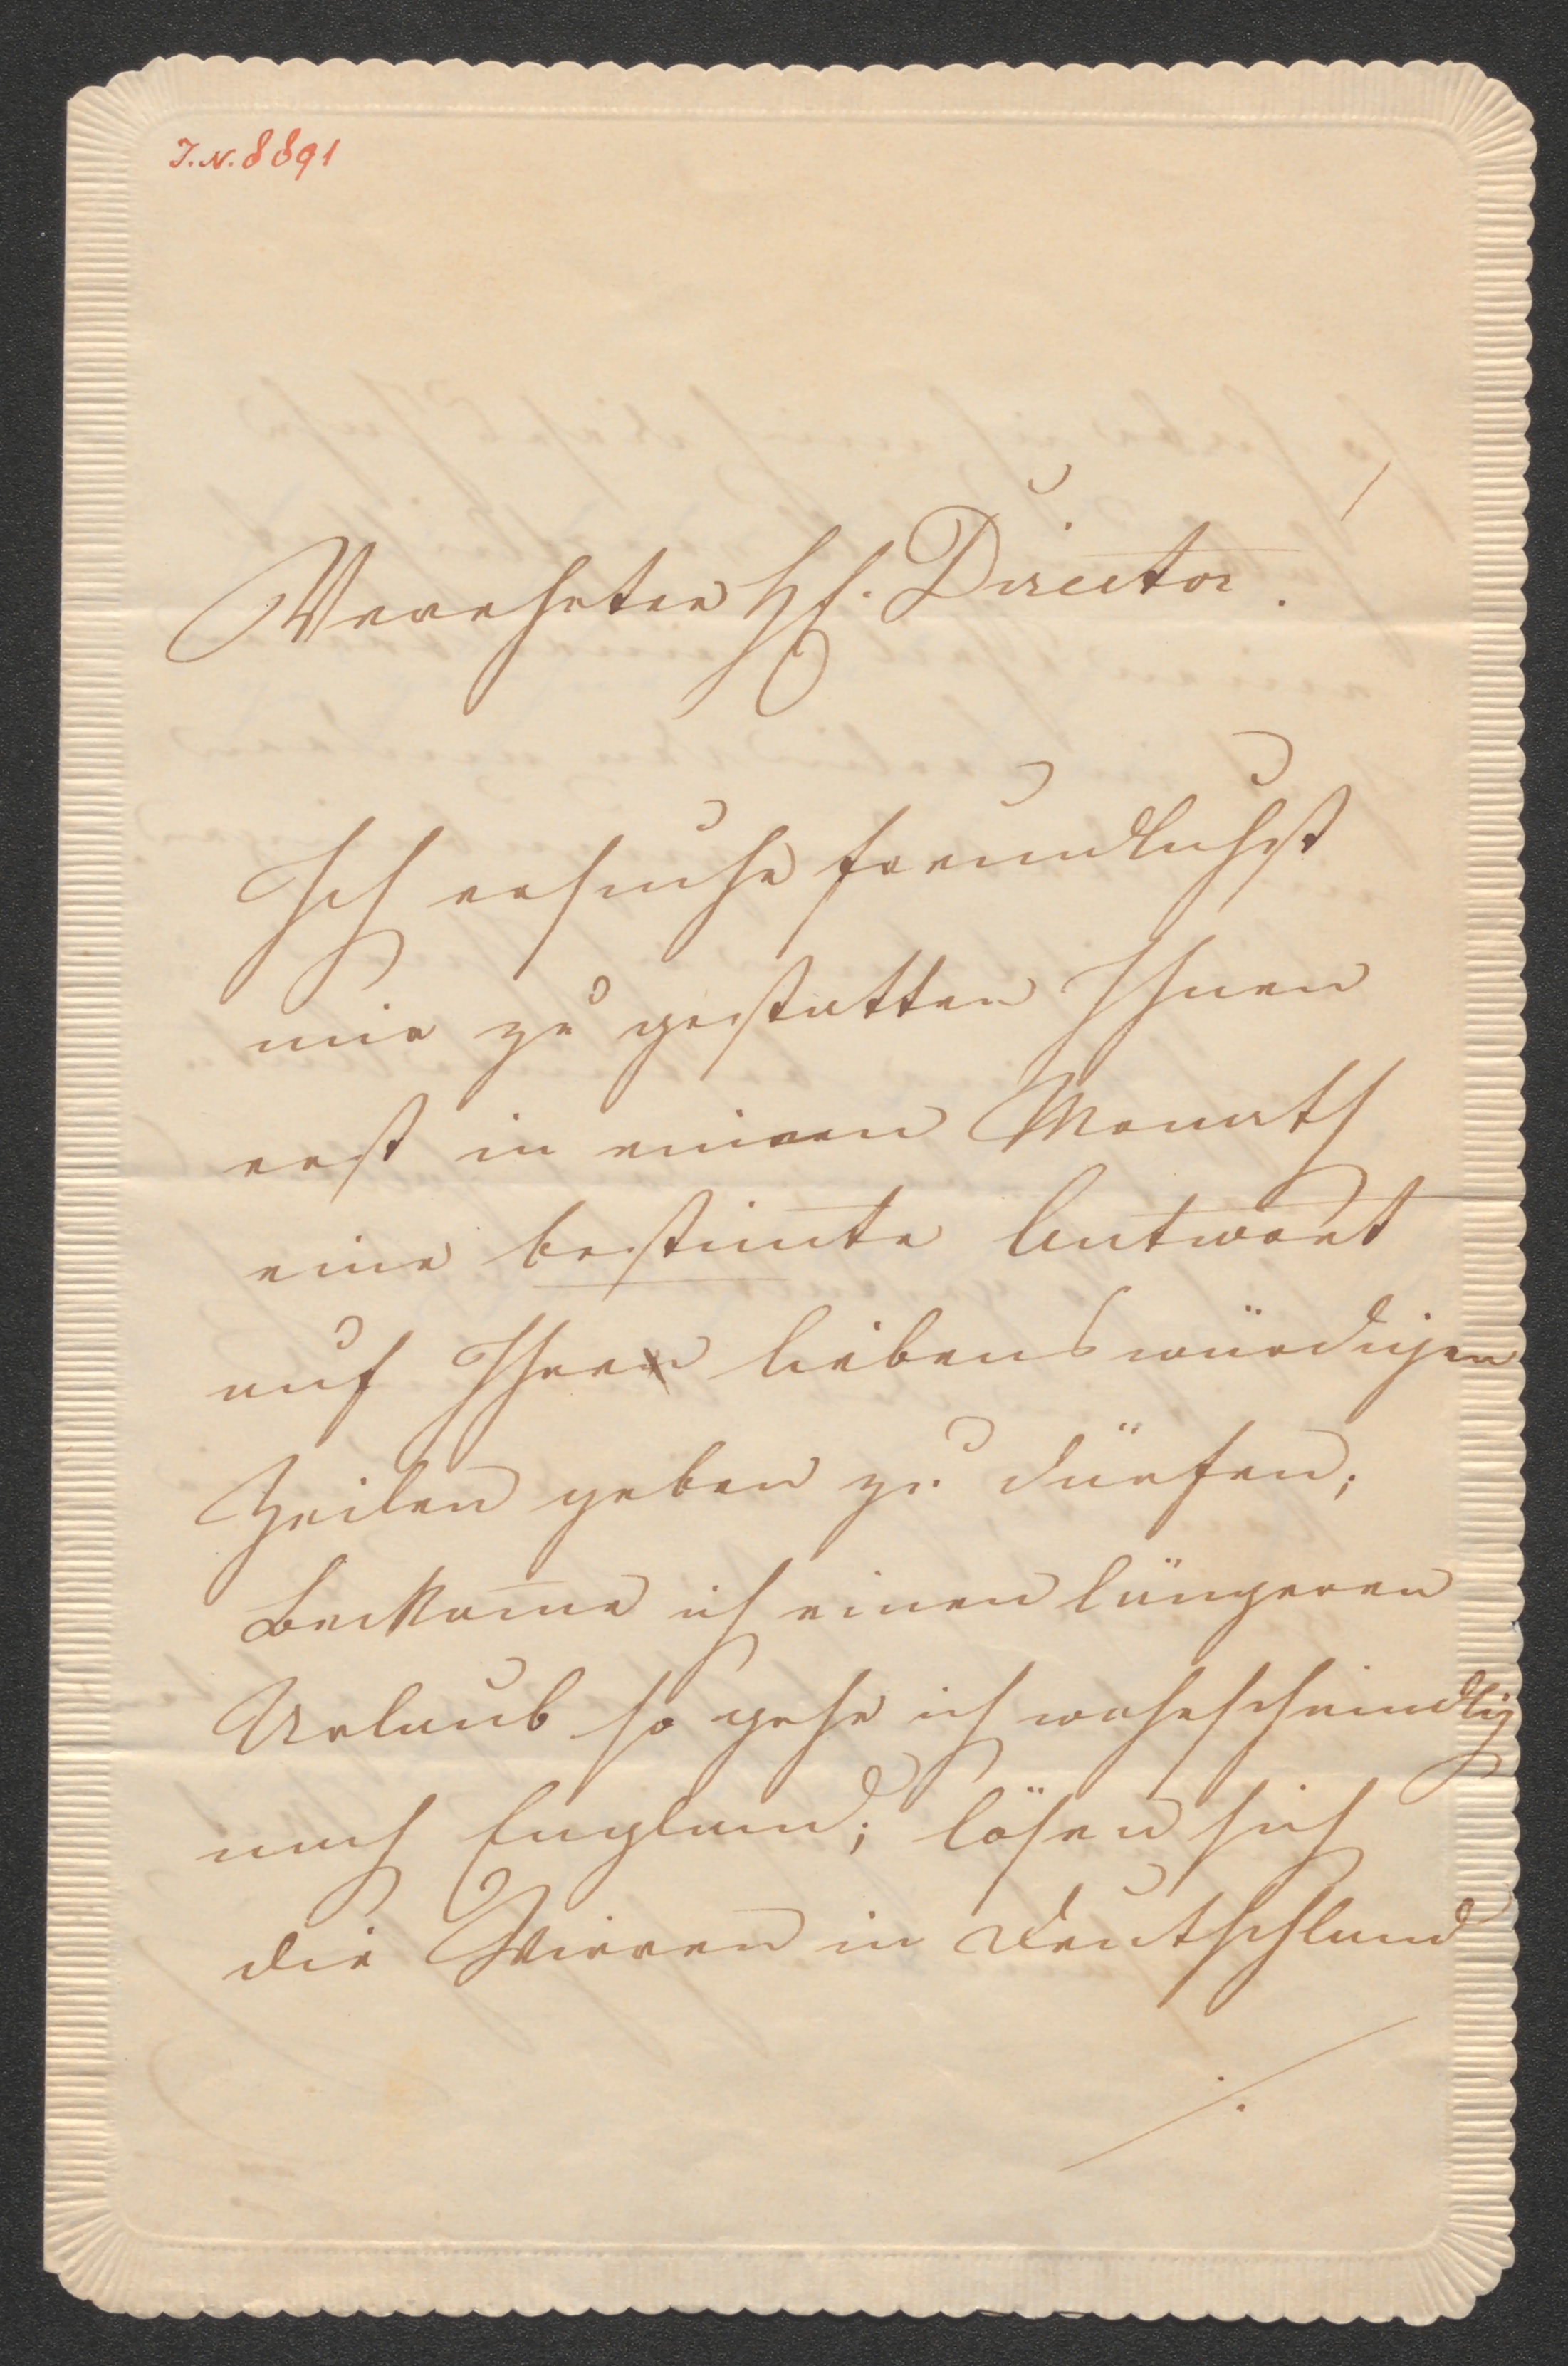 J.N. 8891
Verehrter H. Director!
Ich ersuche freundlichst
mir zu gestatten Ihnen
erst in einem Monath
eine bestim̅te Antwort
auf Ihre liebenswürdigen
Zeilen geben zu dürfen;
Beckom̅e ich einen längeren
Urlaub so gehe ich wahrscheindlig
nach England; lösen sich
die Wirren in Deutschland
./.